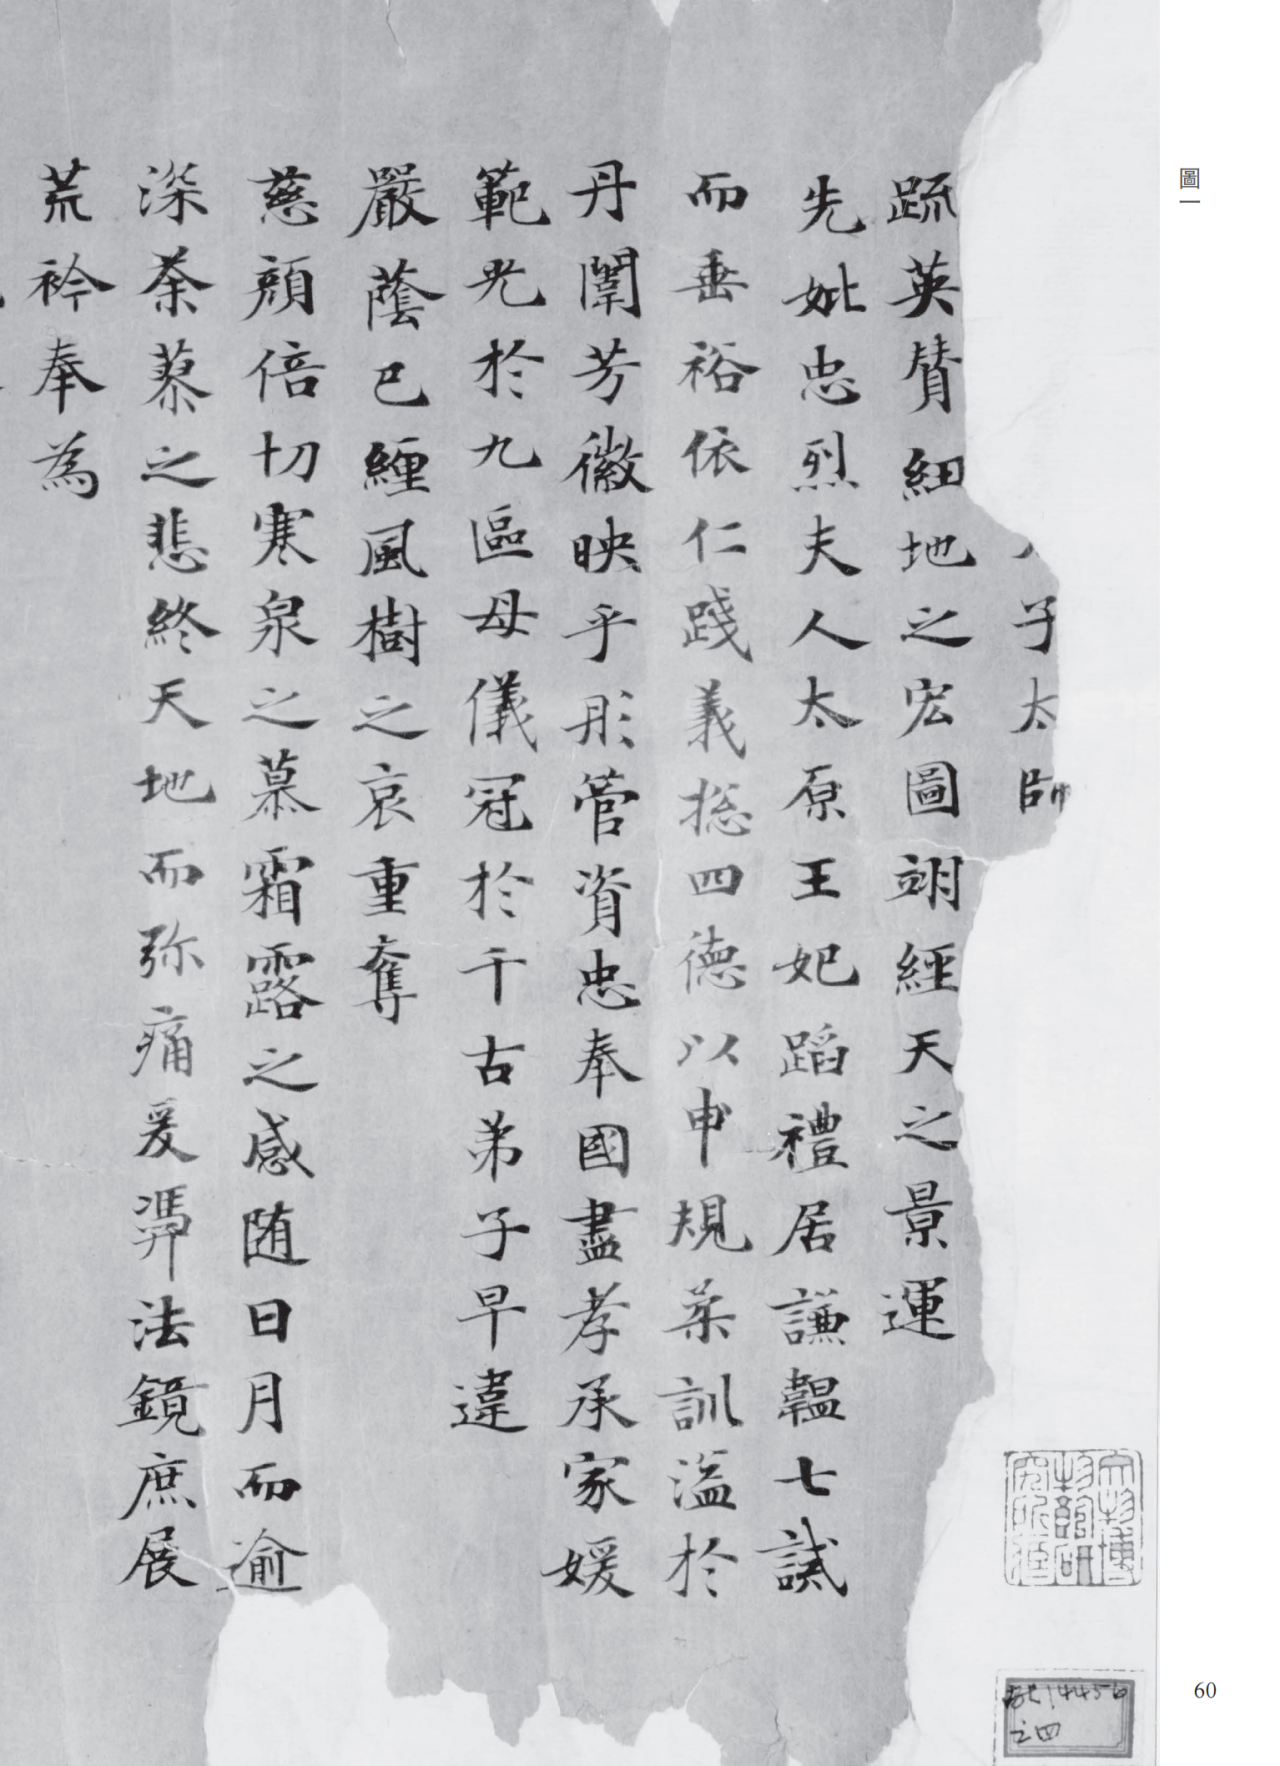 圖一
子太師
疏英賛紐地之宏圖翊經天之景運
先妣忠烈夫人太原王妃蹈禮居謙韞七誡
而垂裕依仁踐義捴四德以申規柔訓溢於
丹闈芳徽映乎彤管資忠奉國盡孝承家媛
範光於九區母儀冠於千古弟子早違
嚴蔭已纏風樹之哀重奪
慈顔倍切寒泉之慕霜露之感随日月而逾
深荼蓼之悲終天地而弥痛爰憑法鏡庶展
荒衿奉為
60
14456
之四